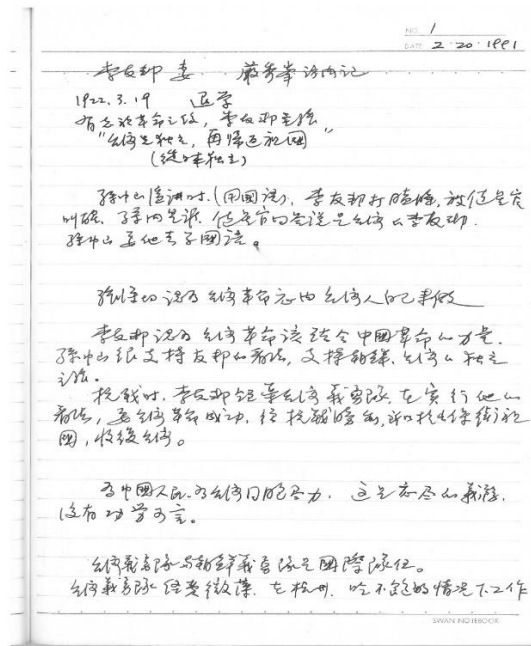 NO. 1
DATE 2.20.1991
李友邦 妻 嚴秀峯 訪問記
1922.3.19 退学
有志於革命之後，李友邦主張
"台灣先独立，再歸返祖國"
(從日本独立)
孫中山演講時(用國語)，李友邦打瞌睡，被值星官
叫醒。孫問是誰，值星官回答說是台湾人李友邦.
孫中山要他去學國語。
認為台湾革命应由台湾人自己來做
李友邦認为台湾革命該結合中國革命的力量.
孫中山很支持友邦的看法，支持朝鮮、台湾的独立
主張。
抗戰時，李友邦組台湾義勇隊在實行他的
看法，要台湾革命成功，從抗戰勝利，
國，收復台湾。
為中國人民、为台湾同胞尽力，這是应尽的義務，
沒有功勞可言。
台湾義勇隊与朝鮮義勇隊是國際隊伍。
台湾義勇隊經費微薄，在杭州，吃不飽的情況下工作
SWAN NOTEBOOK